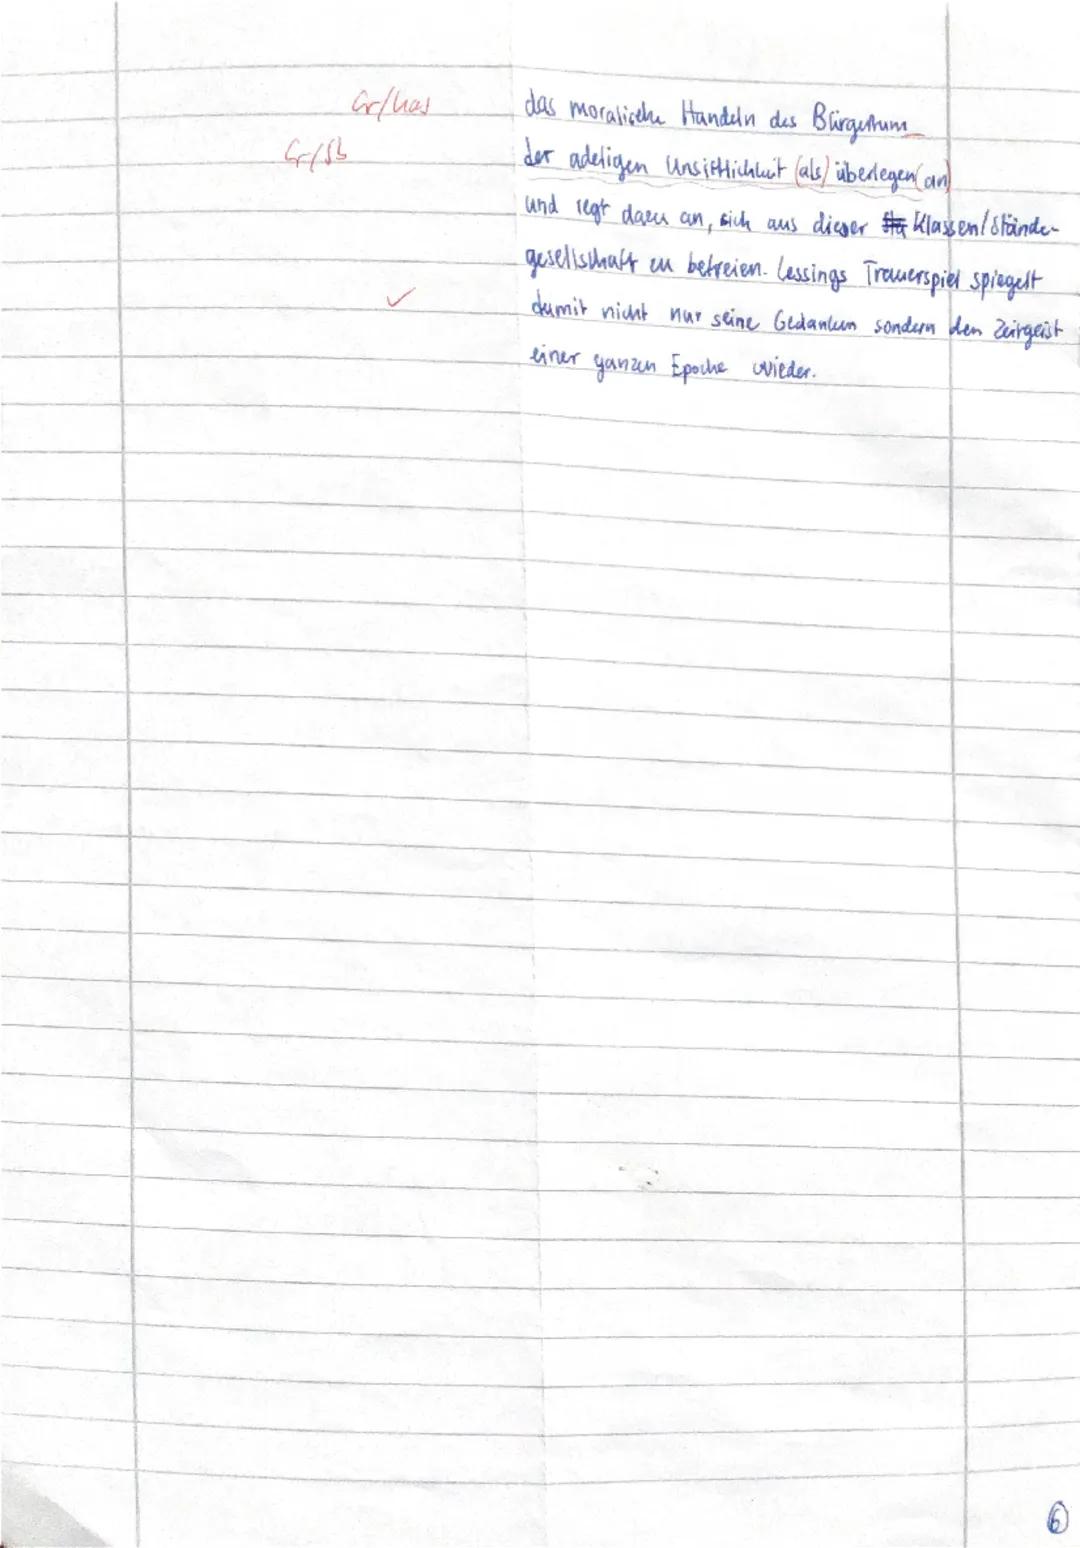 Gr/Kas
das moralische Handeln des Bürgertum
Gr/Sb
der adeligen Unsittlichkeit (als) überlegen (an)
und regt dazu an, sich aus dieser Klassen/Stände-
gesellschaft zu befreien. Lessings Trauerspiel spiegelt
damit nicht nur seine Gedanken sondern den Zeitgeist
einer ganzen Epoche wieder.
6